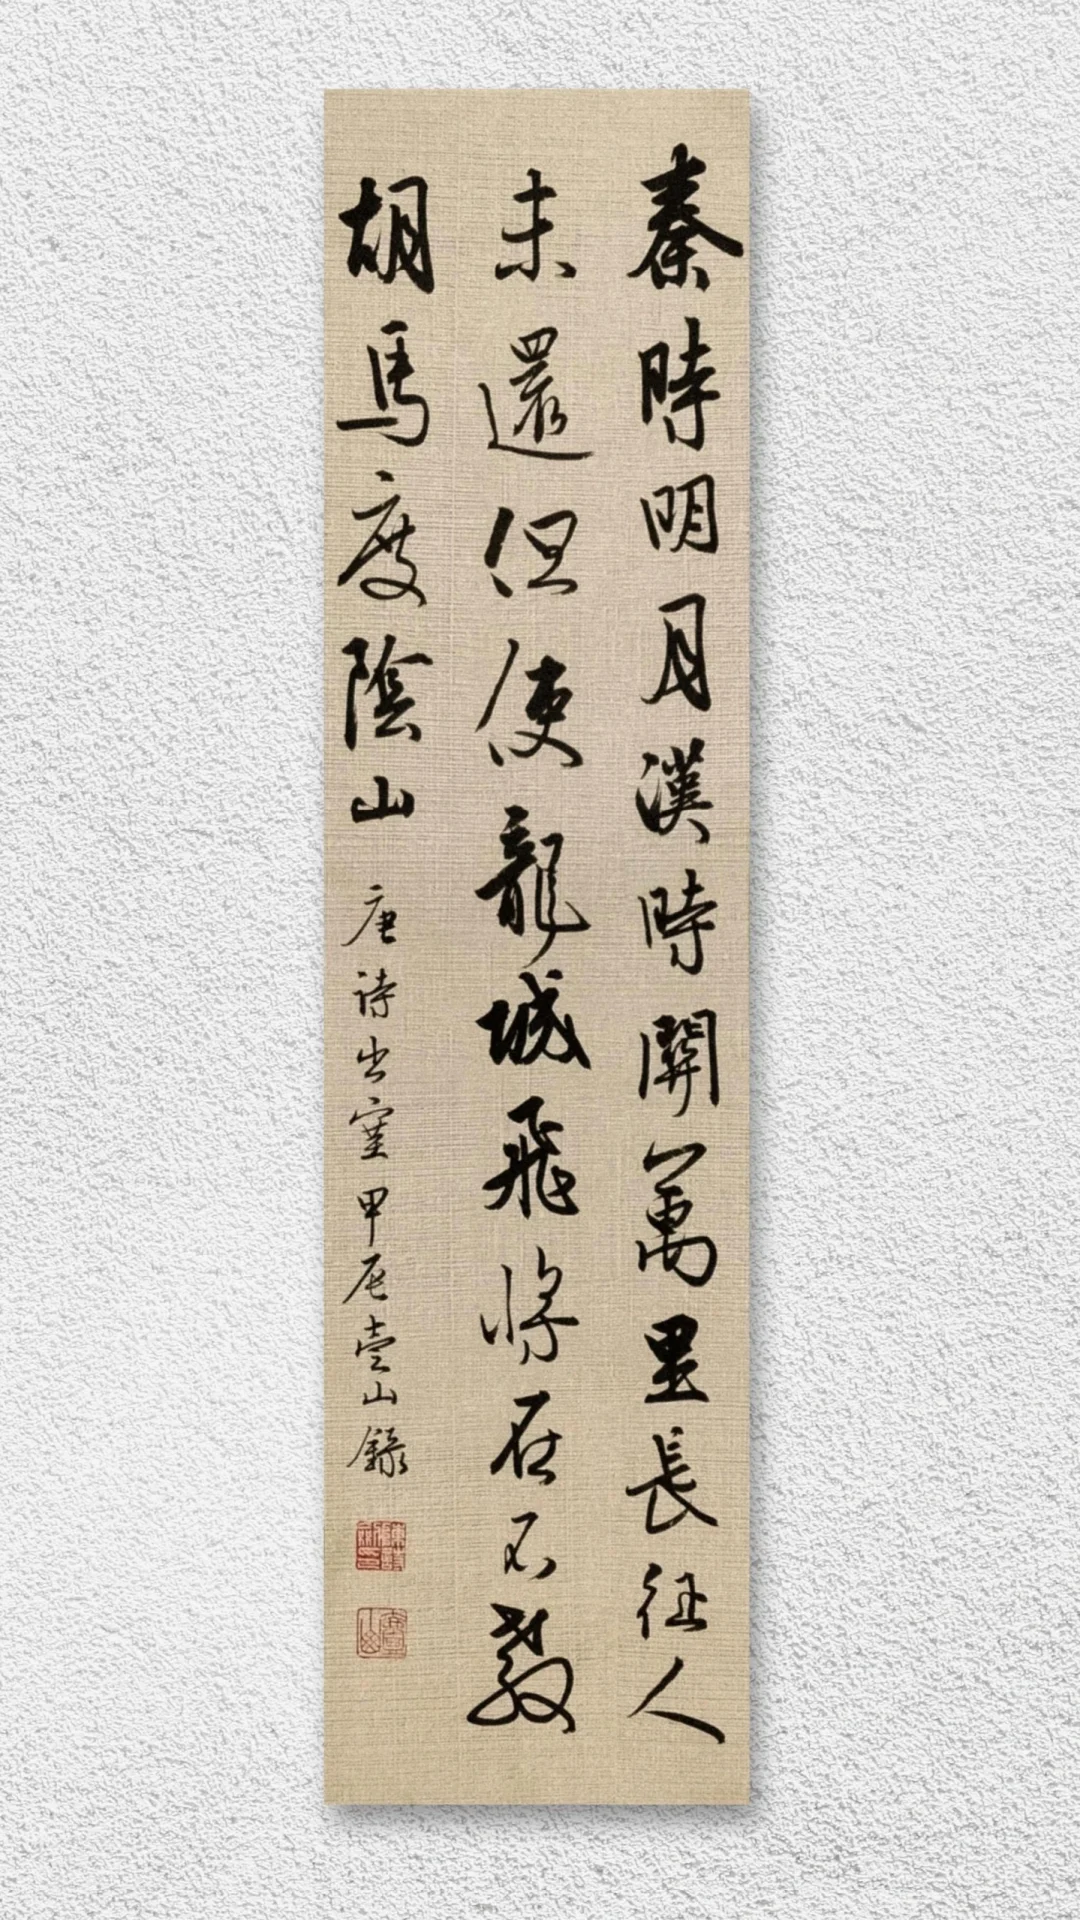 秦時明月漢時關萬里長征人
未還但使龍城飛將在不教
胡馬度陰山
唐詩出塞甲辰壹山錄